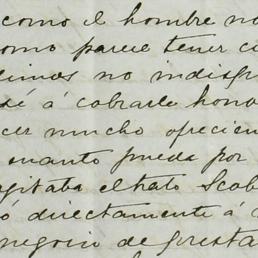 como el hombre no
como parece tener cu
dimos no indisgu
sé á cobrarle hono
cer mucho ofrecien
cuanto pueda por
agitaba el trato Scob
ó directamente á
negocio de presta